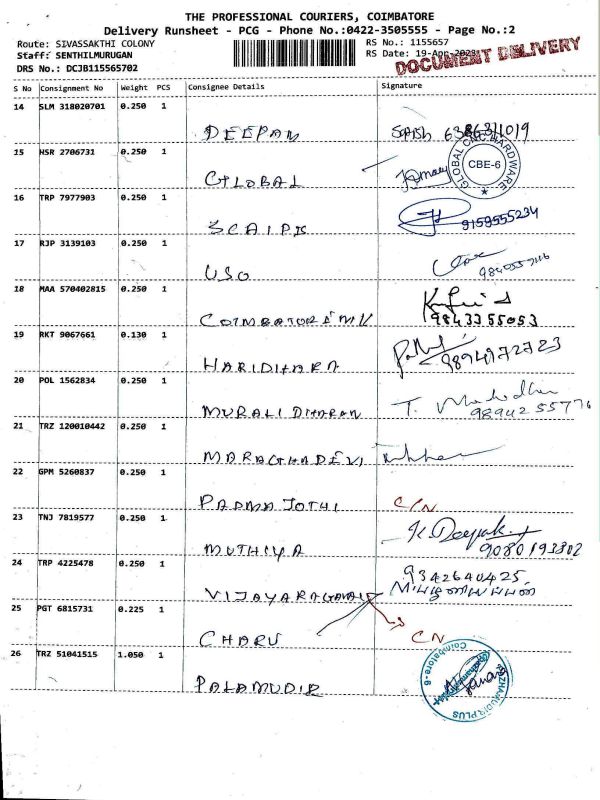 THE PROFESSIONAL COURIERS, COIMBATORE
Delivery Runsheet - PCG - Phone No.:0422-3505555 - Page No.:2
Route: SIVASSAKTHI COLONY RS No.: 1155657
Staff: SENTHILMURUGAN RS Date: 19-Apr-2023
DRS No.: DCJB115565702
DOCUMENT DELIVERY
S No Consignment No Weight PCS Consignee Details Signature
14 SLM 318020701 0.250 1
DEEPAN 6386311019
15 HSR 2706731 0.250 1
GLOBAL
GLOBAL CNC HARDWARE
CBE-6
16 TRP 7977903 0.250 1
9159555234
17 RJP 3139103 0.250 1
USO
18 MAA 570402815 0.250 1
COIMBATORE 9843355053
19 RKT 9067661 0.130 1
HARIDHARA 9894972723
20 POL 1562834 0.250 1
MURALI DHARAN T.
9894255776
21 TRZ 120010442 0.250 1
MARAGHADEVI
22 GPM 5260837 0.250 1
PADMA JOTHI C/N
23 TNJ 7819577 0.250 1
K. Deepak
MUTHIYA 9080193802
24 TRP 4225478 0.250 1
9342640425
25 PGT 6815731 0.225 1
CHARU CN
26 TRZ 51041515 1.050 1
PALAMUDIR
Coimbatore-6